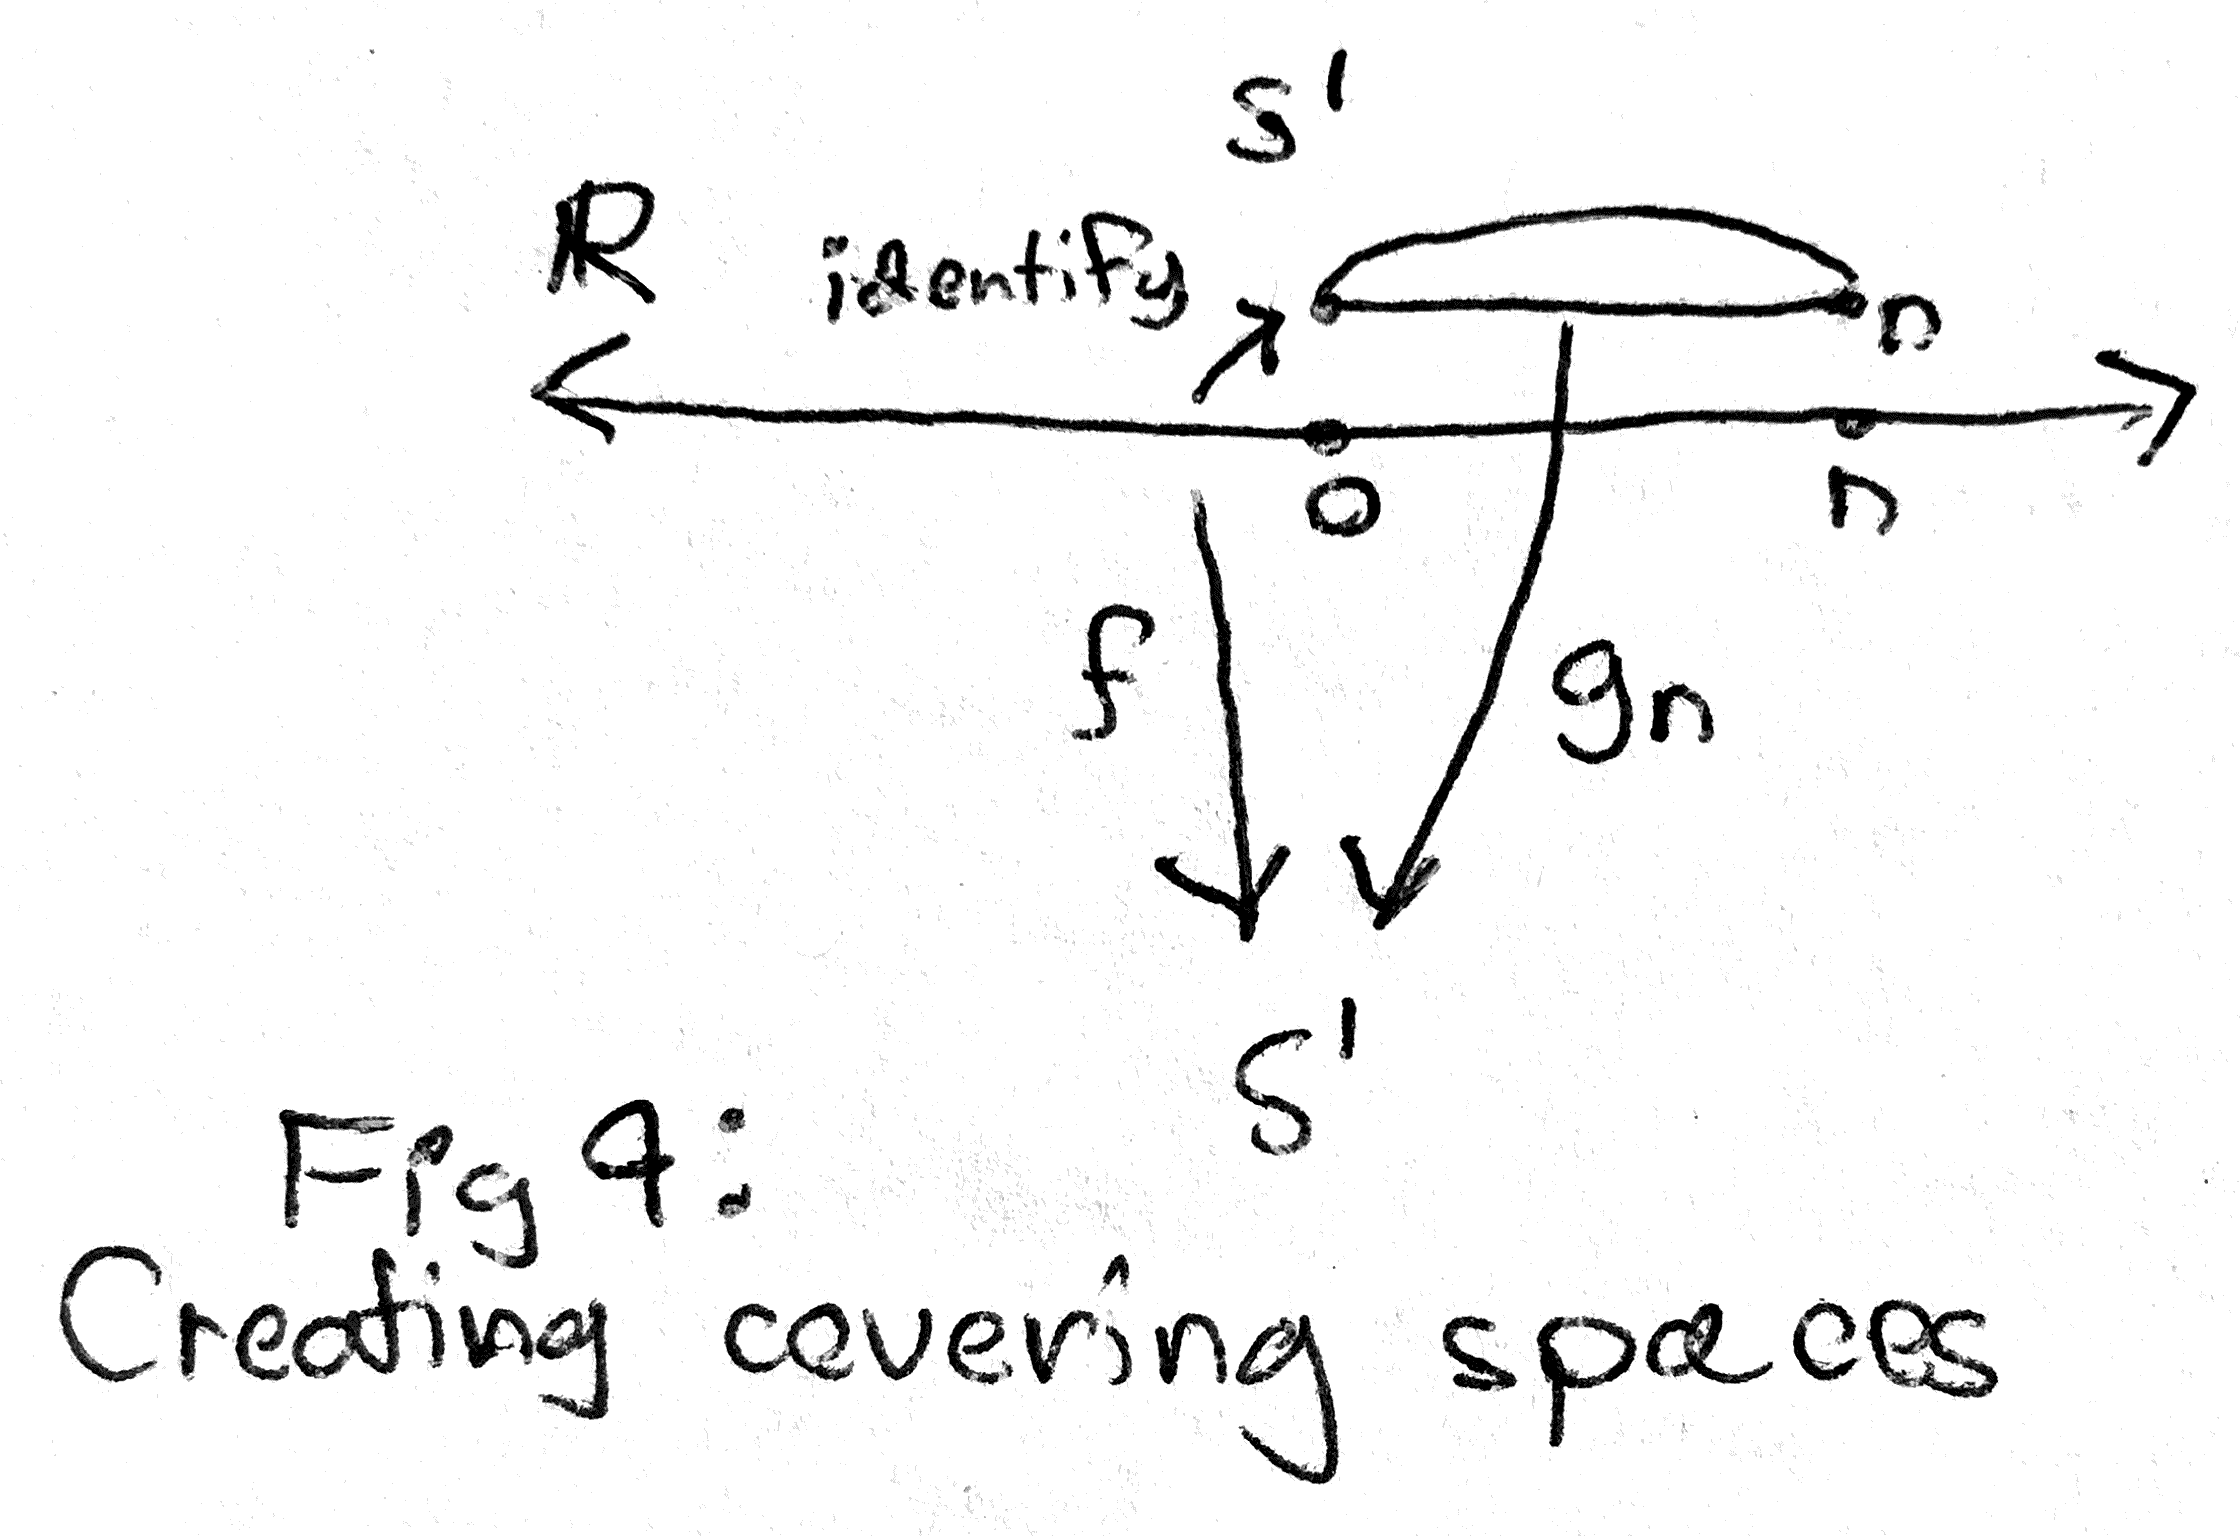 S¹
ℝ
identify
n
0
n
f
gn
S¹
Fig 9:
Creating covering spaces